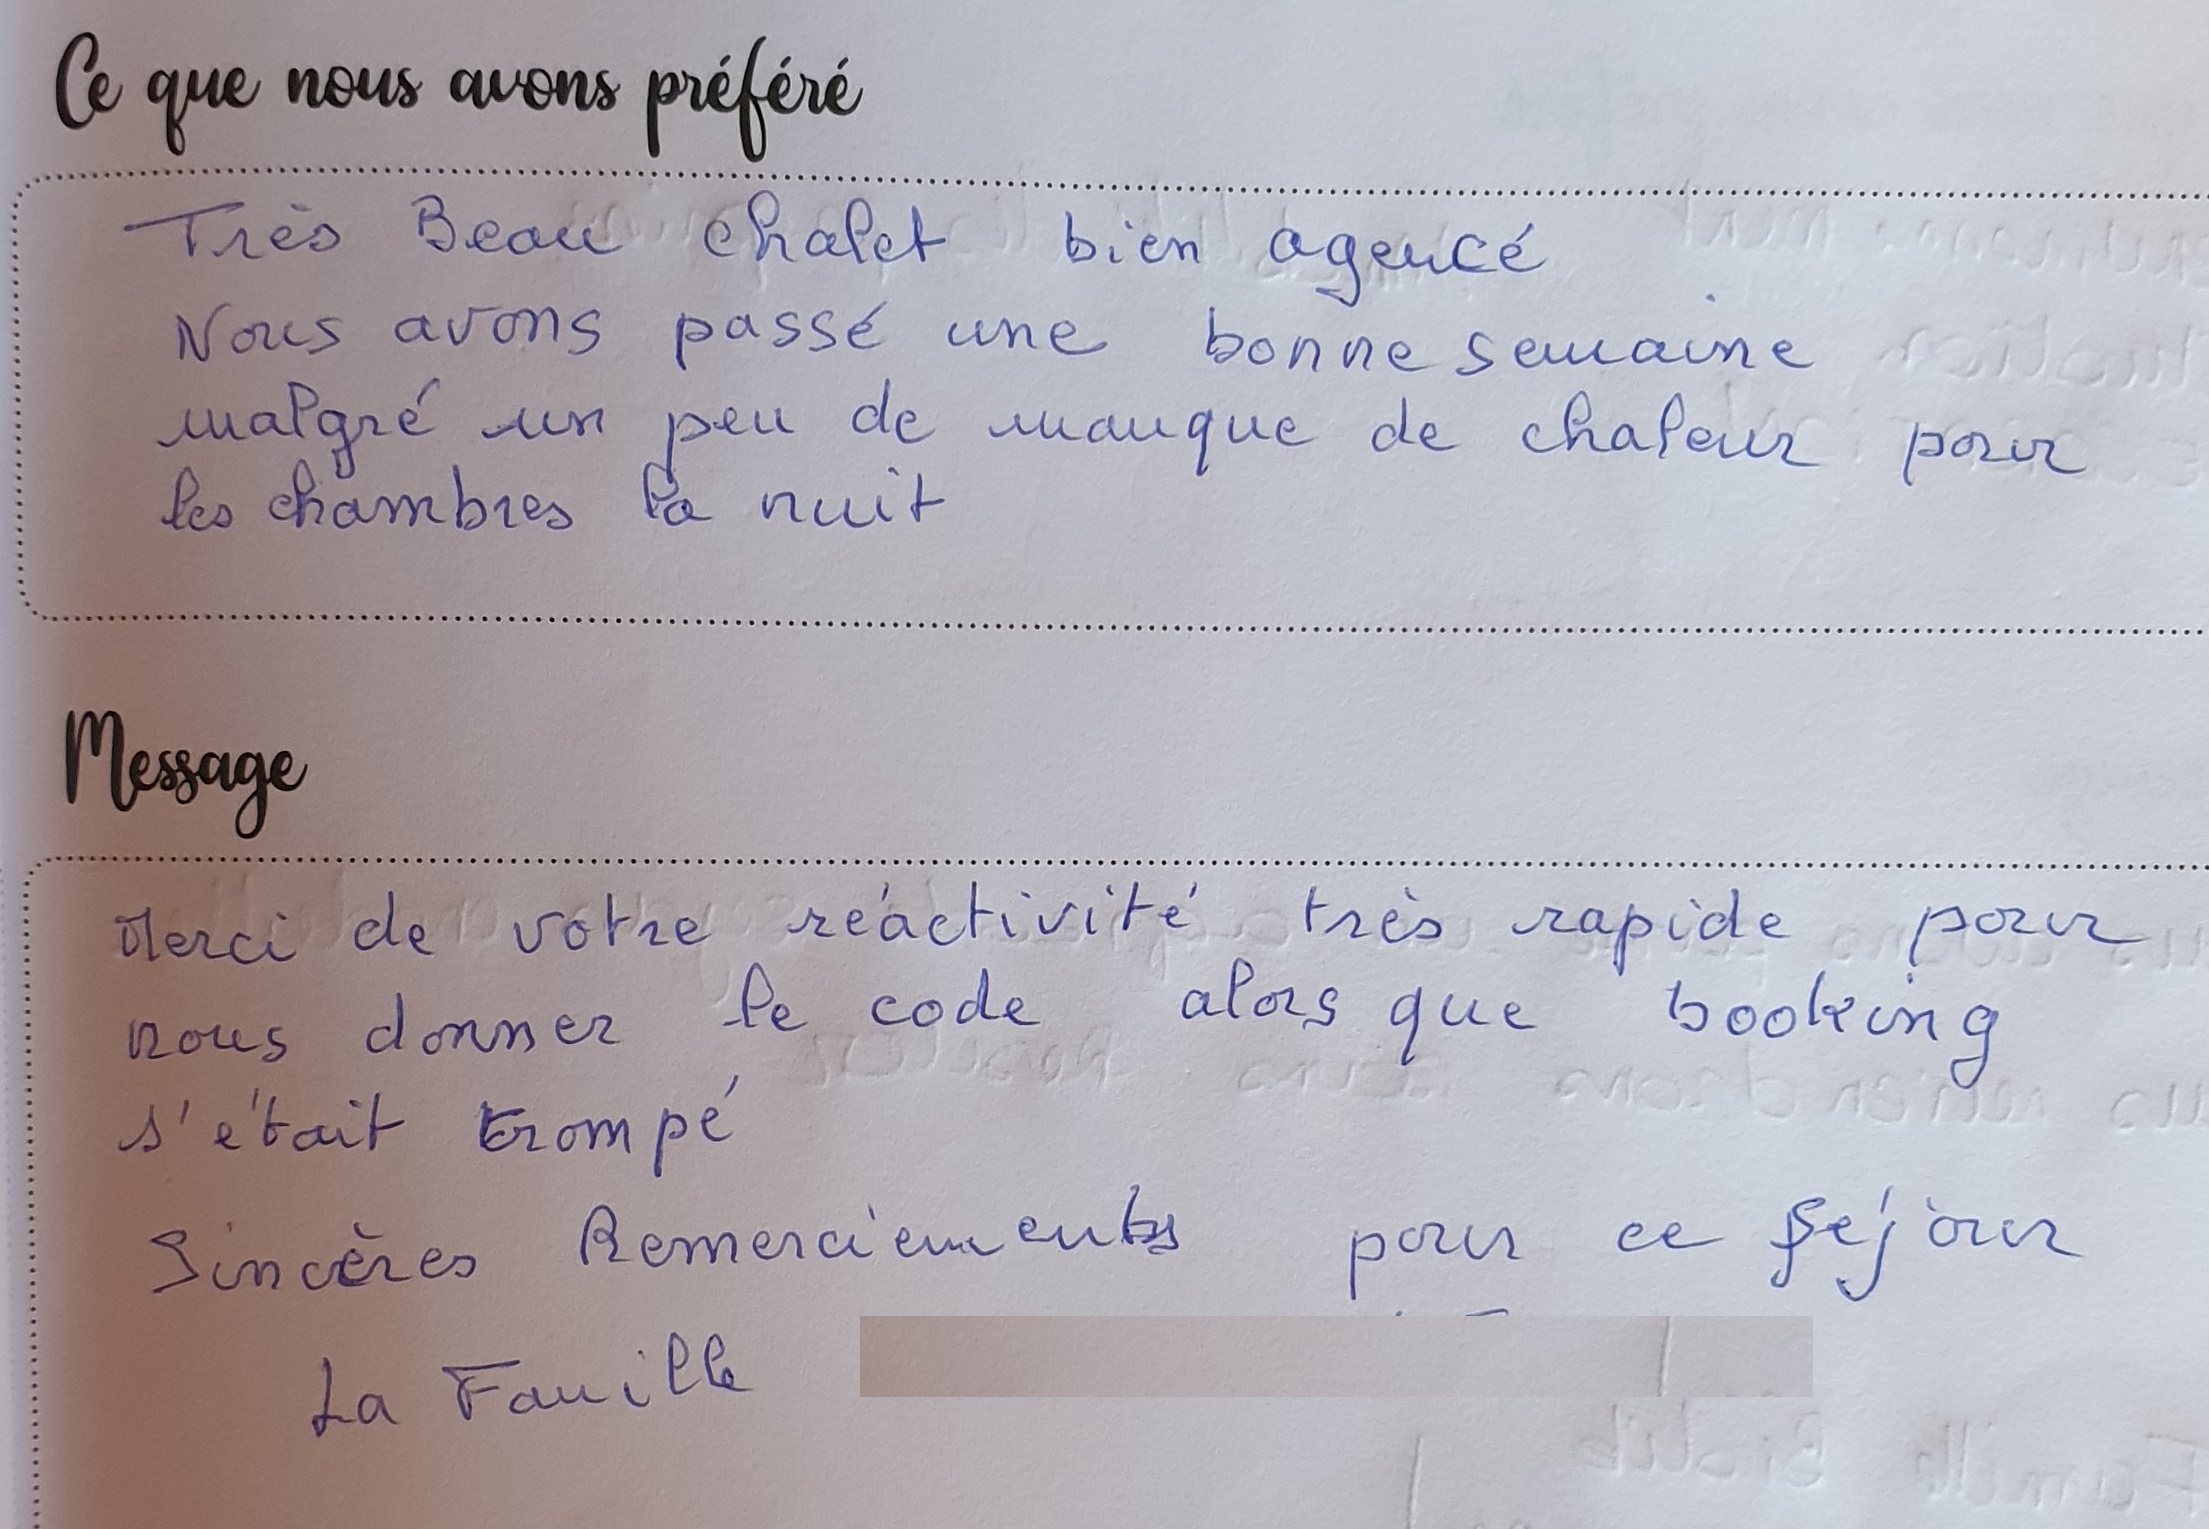 Ce que nous avons préféré
Très Beau chalet bien agencé
Nous avons passé une bonne semaine
malgré un peu de manque de chaleur pour
les chambres la nuit
Message
Merci de votre réactivité très rapide pour
nous donner le code alors que booking
s'était trompé
Sincères Remerciements pour ce séjour
La Famille